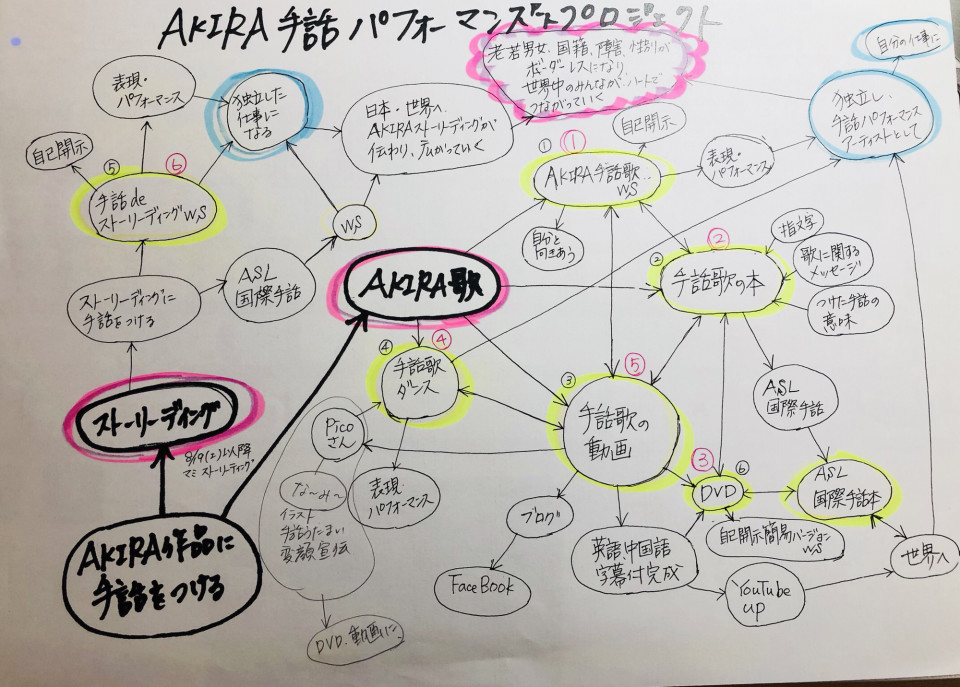 AKIRA 手話パフォーマンスアートプロジェクト
老若男女、国籍、障害、性別が
ボーダーレスになり
世界中のみんなが、ハートで
つながっていく
自分の仕事に
表現・
パフォーマンス
独立した
仕事に
なる
日本・世界へ
AKIRAストーリーディングが
伝わり、広がっていく
自己開示
独立し、
手話パフォーマンス
アーティストとして
自己開示
⑤
⑥
手話de
ストーリーディングWS
①
①
AKIRA手話歌
WS
表現・
パフォーマンス
WS
自分と
向きあう
②
②
手話歌の本
指文字
歌に関する
メッセージ
つけた手話の
意味
ストーリーディングに
手話をつける
ASL
国際手話
AKIRA歌
④
④
手話歌
ダンス
③
⑤
手話歌の
動画
ASL
国際手話
ストーリーディング
8/9(土)以降
マミ ストーリーディング
Pico
さん
な〜み〜
イラスト
手話うたまい
変顔宣伝
表現・
パフォーマンス
③
⑥
DVD
ASL
国際手話本
ブログ
自己開示簡易バージョン
WS
AKIRA作品に
手話をつける
FaceBook
英語、中国語
字幕付完成
YouTube
up
世界へ
DVD、動画に